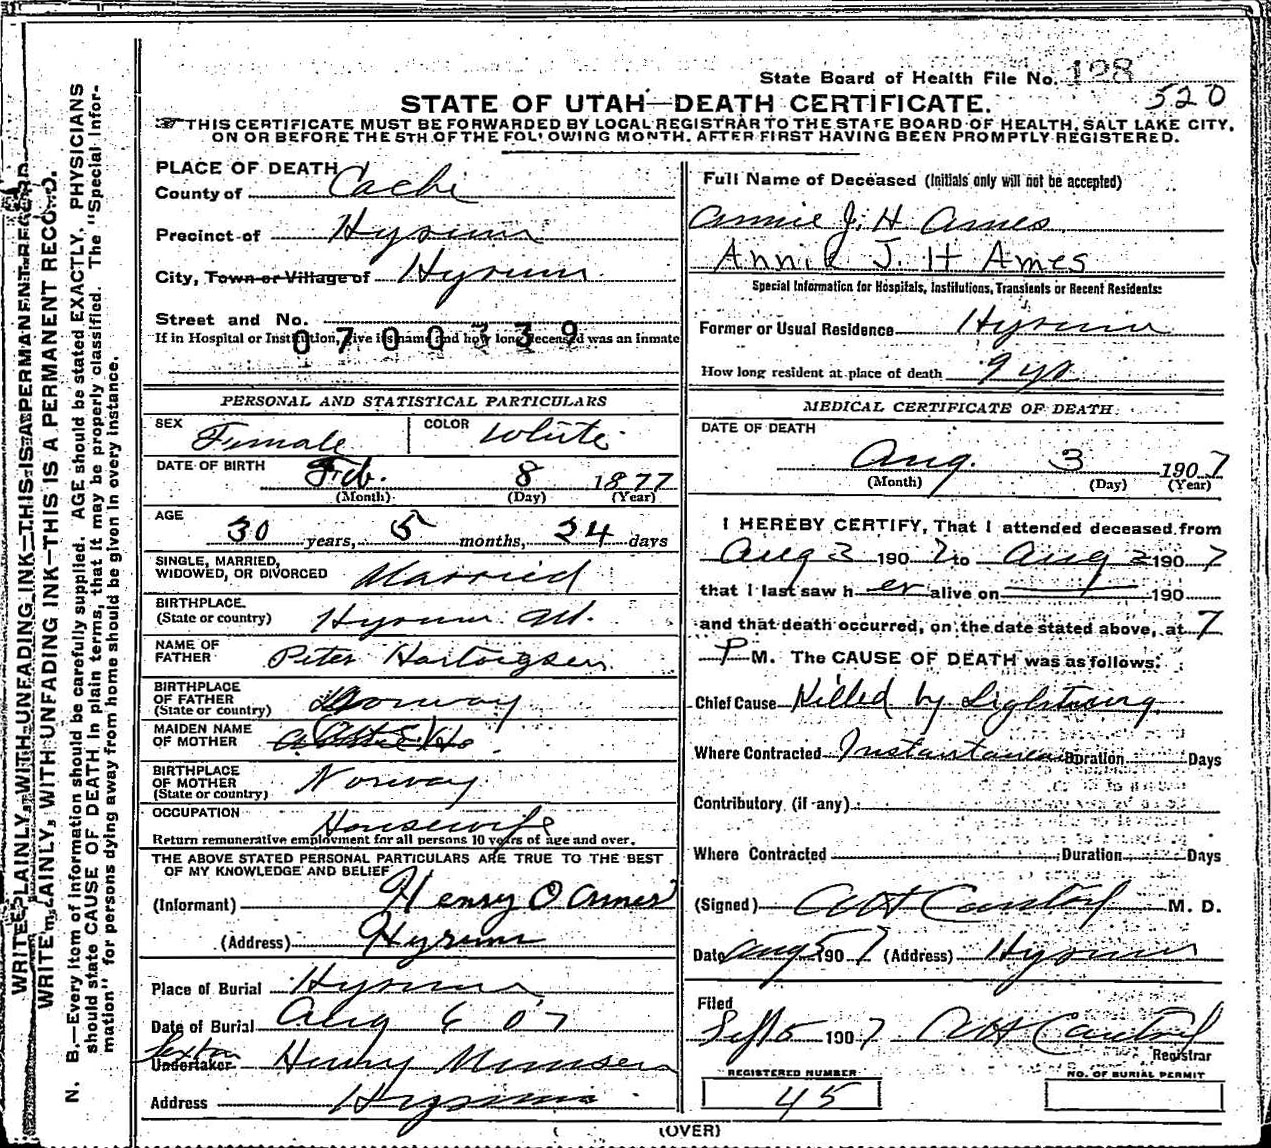 State Board of Health File No. 128
520
STATE OF UTAH—DEATH CERTIFICATE.
THIS CERTIFICATE MUST BE FORWARDED BY LOCAL REGISTRAR TO THE STATE BOARD OF HEALTH, SALT LAKE CITY,
ON OR BEFORE THE 5TH OF THE FOLLOWING MONTH, AFTER FIRST HAVING BEEN PROMPTLY REGISTERED.
WRITE PLAINLY, WITH UNFADING INK—THIS IS A PERMANENT RECORD.
WRITE PLAINLY, WITH UNFADING INK—THIS IS A PERMANENT RECORD.
N. B.—Every item of information should be carefully supplied. AGE should be stated EXACTLY. PHYSICIANS
should state CAUSE OF DEATH in plain terms, that it may be properly classified. The "Special Infor-
mation" for persons dying away from home should be given in every instance.
PLACE OF DEATH
County of Cache
Precinct of Hyrum
City, Town or Village of Hyrum
Street and No.
0700339
If in Hospital or Institution, give its name and how long deceased was an inmate
PERSONAL AND STATISTICAL PARTICULARS
SEX Female COLOR White
DATE OF BIRTH Feb. 8 1877
(Month) (Day) (Year)
AGE
30 years, 5 months, 24 days
SINGLE, MARRIED,
WIDOWED, OR DIVORCED Married
BIRTHPLACE
(State or country) Hyrum Ut.
NAME OF
FATHER Peter Hartvigsen
BIRTHPLACE
OF FATHER
(State or country) Norway
MAIDEN NAME
OF MOTHER
BIRTHPLACE
OF MOTHER
(State or country) Norway
OCCUPATION
Housewife
Return remunerative employment for all persons 10 years of age and over.
THE ABOVE STATED PERSONAL PARTICULARS ARE TRUE TO THE BEST
OF MY KNOWLEDGE AND BELIEF
(Informant) Henry O Ames
(Address) Hyrum
Place of Burial Hyrum
Date of Burial Aug 6 07
Sexton
Undertaker Henry
Address Hyrum
Full Name of Deceased (Initials only will not be accepted)
Annie J. H Ames
Annie J. H Ames
Special Information for Hospitals, Institutions, Transients or Recent Residents:
Former or Usual Residence Hyrum
How long resident at place of death 9 yrs
MEDICAL CERTIFICATE OF DEATH
DATE OF DEATH
Aug. 3 1907
(Month) (Day) (Year)
I HEREBY CERTIFY, That I attended deceased from
Aug 3 1907 to Aug 3 1907
that I last saw her alive on 190
and that death occurred, on the date stated above, at 7
P M. The CAUSE OF DEATH was as follows:
Chief Cause Killed by Lightning
Where Contracted Instantaneous Duration Days
Contributory (if any)
Where Contracted Duration Days
(Signed) M. D.
Date Aug 5 1907 (Address) Hyrum
Filed
Sept 5 1907
Registrar
REGISTERED NUMBER
45
NO. OF BURIAL PERMIT
(OVER)